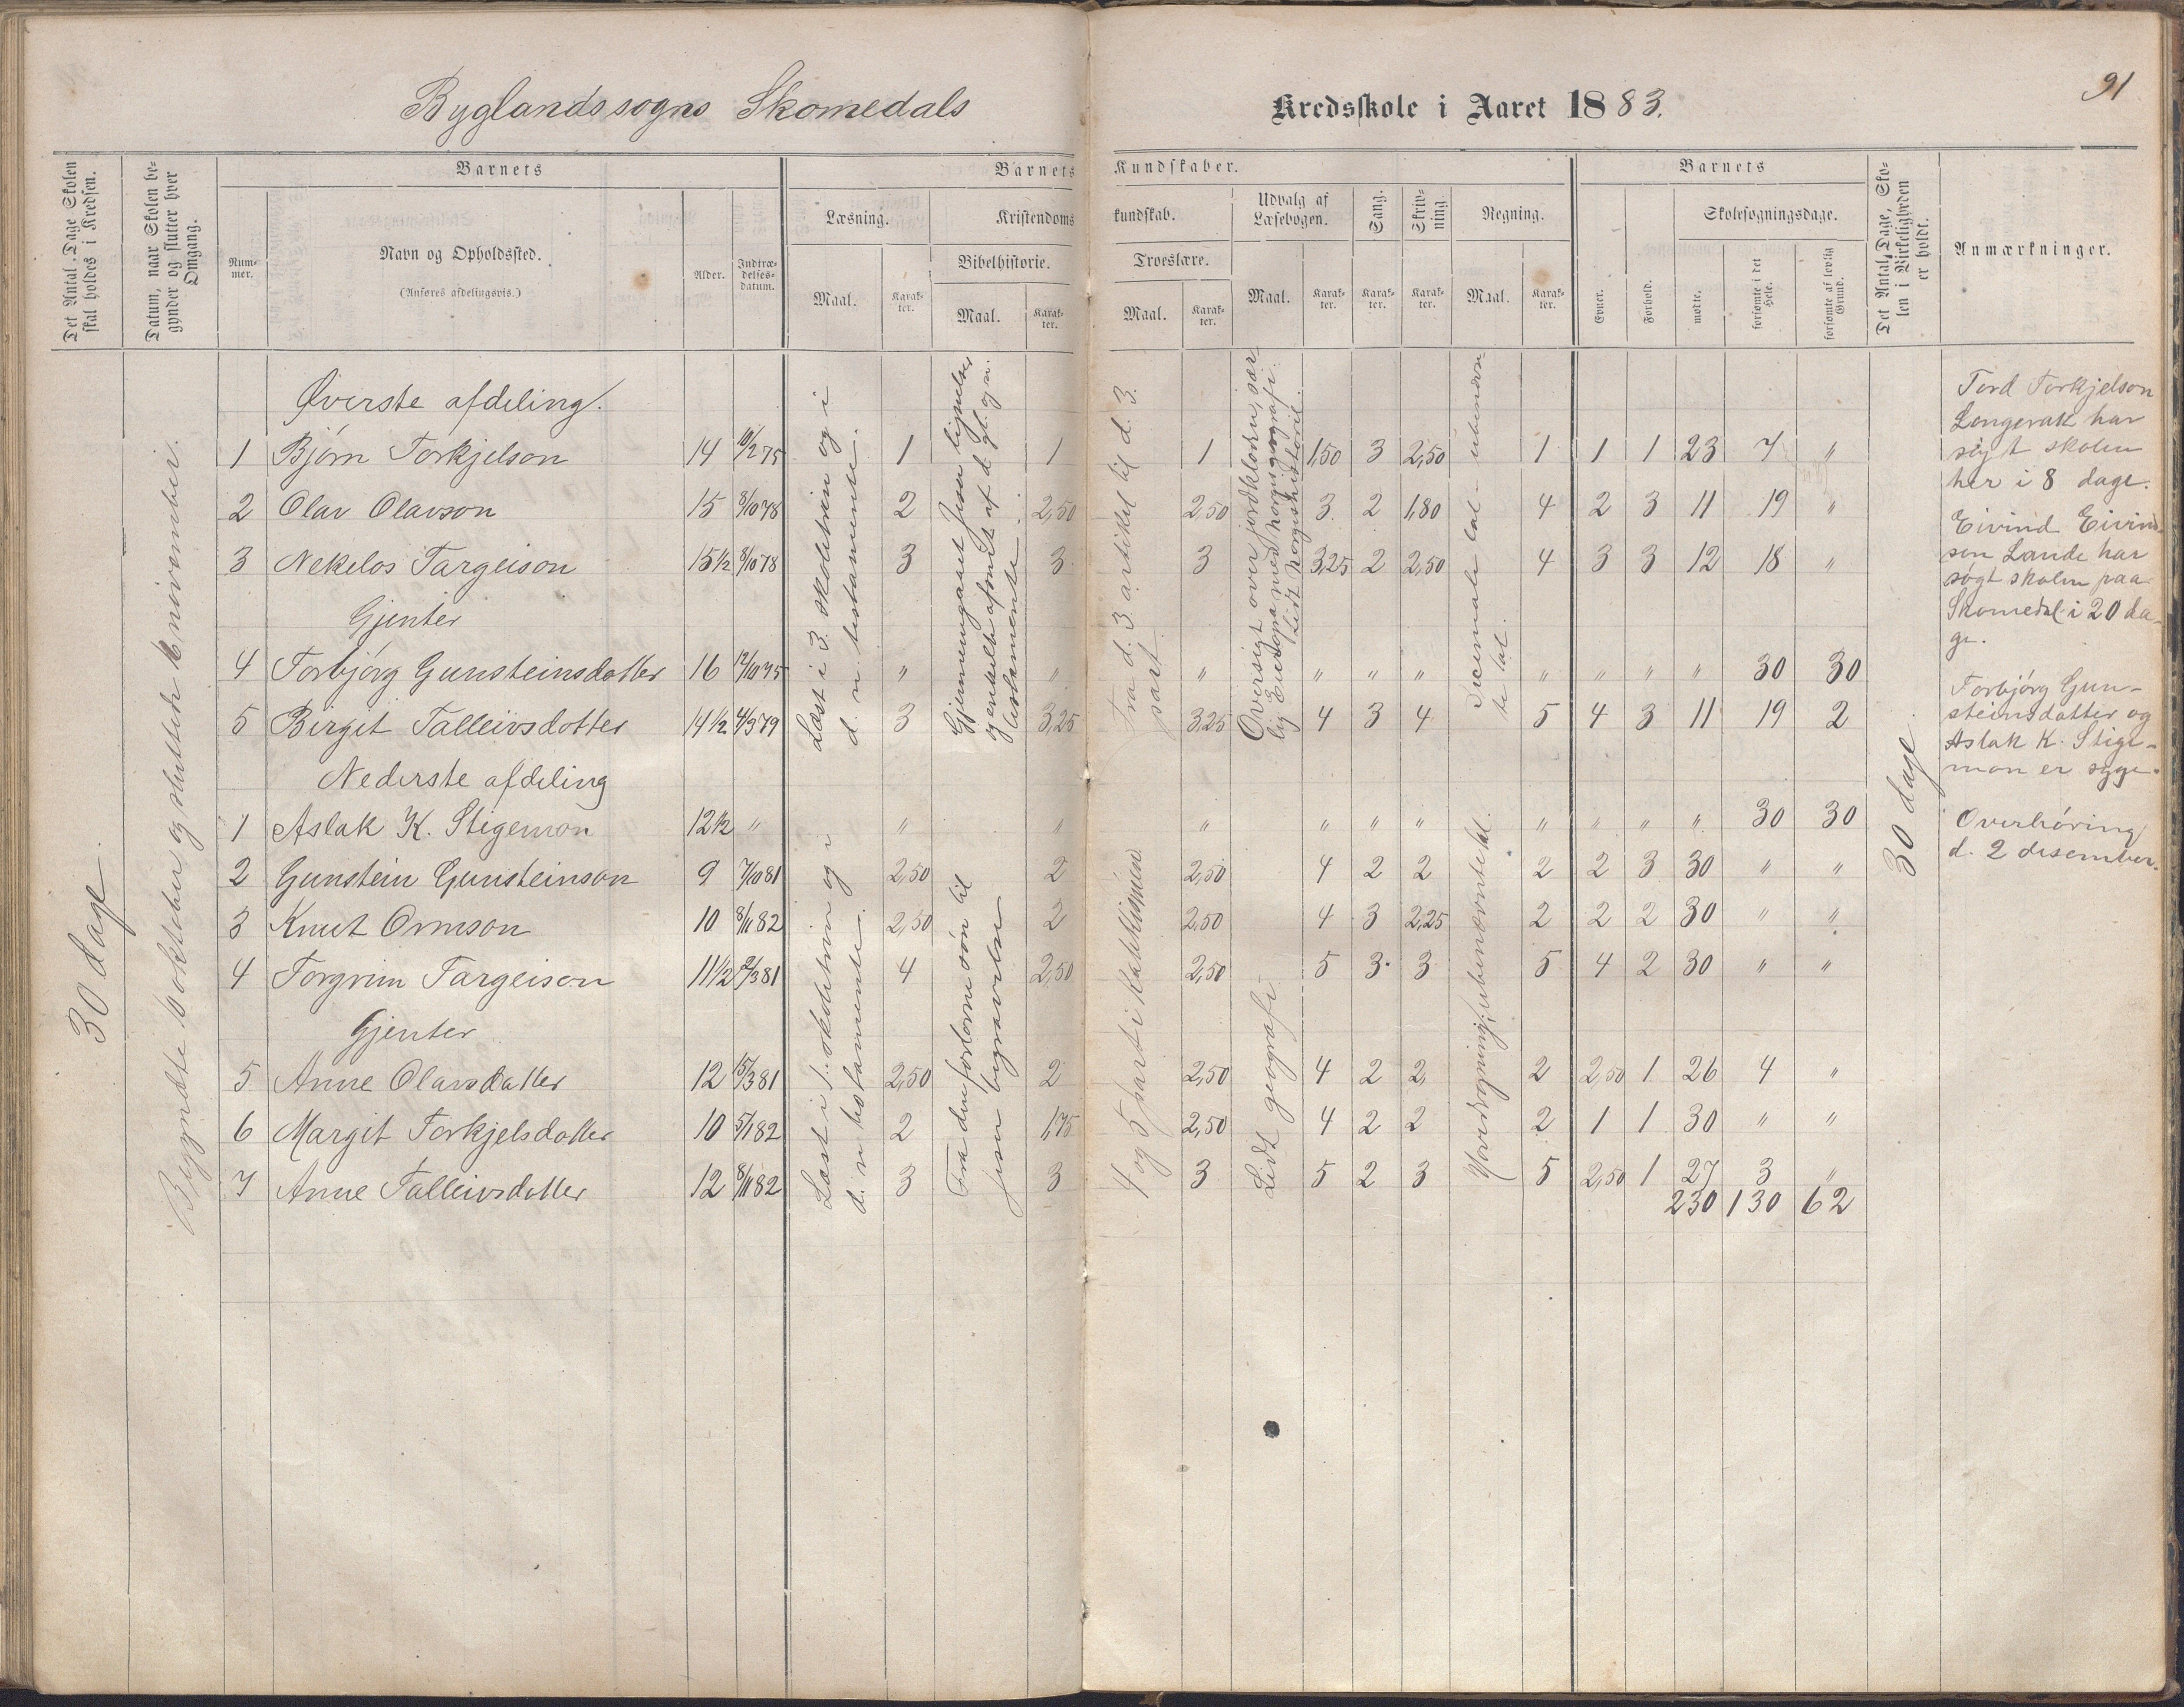 Byglandssogns Skomedals Kredsskole i Aaret 1883.
91
Det Antal Dage Skolen skal holdes i Kredsen.
Datum, naar Skolen begynder og slutter hver Omgang.
Barnets
Nummer.
Navn og Opholdssted.
(Anføres afdelingsvis.)
Alder.
Indtrædelsesdatum.
Barnets Kundskaber.
Læsning.
Maal.
Karakter.
Kristendomskundskab.
Bibelhistorie.
Maal.
Karakter.
Troeslære.
Maal.
Karakter.
Udvalg af Læsebogen.
Maal.
Karakter.
Sang.
Karakter.
Skrivning.
Karakter.
Regning.
Maal.
Karakter.
Barnets
Evner.
Forhold.
Skolesøgningsdage.
mødte.
forsømte i det Hele.
forsømte af lovlig Grund.
Det Antal Dage, Skolen i Virkeligheden er holdt.
Anmærkninger.
30 dage.
Begyndte 6 oktober og sluttede 6 november.
Øverste afdeling.
1 Bjørn Torkjelson 14 10/2 75 1 1 1 1,50 3 2,50 1 1 1 23 7 "
2 Olav Olavson 15 8/10 78 2 2,50 2,50 3 2 1,80 4 2 3 11 19 "
3 Nekelos Targeison 15½ 8/10 78 3 3 3 3,25 2 2,50 4 3 3 12 18 "
Gjenter
4 Torbjørg Gunsteinsdatter 16 12/10 75 " " " " " " " " " " 30 30
5 Birgit Talleivsdotter 14½ 4/3 79 3 3,25 3,25 4 3 4 5 4 3 11 19 2
Læst i 3. skoletrin og i
d. n. testamente.
Gjennemgaaet Jesu lignelser
og enkelte afsnit af d. gl. og n.
testamente.
Fra d. 3 artikel til d. 3.
part.
Oversigt over jordkloden, særlig
Europa med Norgis geografi.
Lidt Norgishistorie.
Decimale tal - ubenævnte
tal.
Nederste afdeling
1 Aslak K. Stigemon 12½ " " " " " " " " " " " 30 30
2 Gunstein Gunsteinson 9 7/10 81 2,50 2 2,50 4 2 2 2 2 3 30 " "
3 Knut Ormson 10 8/11 82 2,50 2 2,50 4 3 2,25 2 2 2 30 " "
4 Torgrim Targeison 11½ 2/3 81 4 2,50 2,50 5 3 3 5 4 2 30 " "
Gjenter
5 Anne Olavsdatter 12 15/3 81 2,50 2 2,50 4 2 2 2 2,50 1 26 4 "
6 Margit Torkjelsdatter 10 5/1 82 2 1,75 2,50 4 2 2 2 1 1 30 " "
7 Anne Talleivsdotter 12 8/11 82 3 3 3 5 2 3 5 2,50 1 27 3 "
230 130 62
Læst i 1. skoletrin og i
d. n. testamente.
Fra den fortorne søn til
Jesu begravelse
4 og 5 part i Katekismen.
Lidt geografi.
Hovedregning, ubenævnte tal.
30 dage
Tord Torkjelson
Longerak har
søgt skolen
her i 8 dage.
Eivind Eivindsen
Lande har
søgt skolen paa
Skomedal i 20 dage.
Torbjørg Gunsteinsdatter
og
Aslak K. Stigemon
er syge.
Overhøring
d. 2 desember.